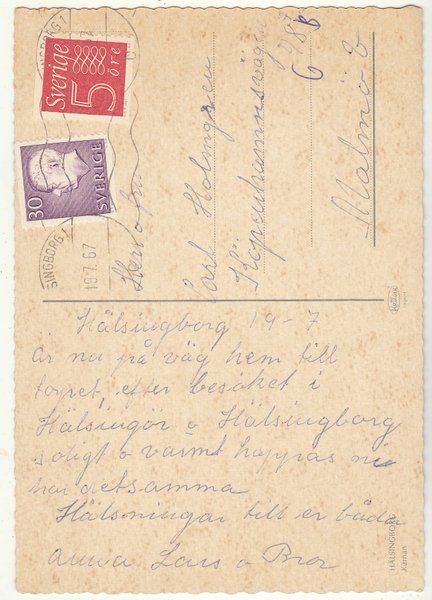 Hälsingborg 19-7
Är nu på väg hem till
torpet, efter besöket i
Hälsingör o Hälsingborg
soligt o varmt hoppas ni
har detsamma
Hälsningar till er båda
Anna Lars o Bror
HÄLSINGBORG
Kärnan
SINGBORG 1
19.7.67
Sverige
5 öre
30
SVERIGE
Herr o fru
Carl Holmgren
Köpenhamnsvägen
Malmö